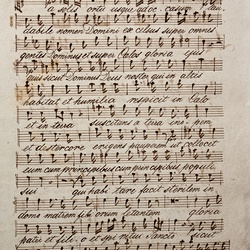 a solis ortu usque ad oc- casum lau-
dabile nomen Domini excelsus super omnes
gentes Dominus et super Celos gloria ejus
quis sicut Dominus Deus noster qui in altis
habitat et humilia respicit in Celo
et in terra suscitans a terra ino- pem
et de stercore erigens pauperem ut collocet
eum cum principibus cum principibus populi
sui qui habi- tare facit sterilem in
domo matrem fili- orum letantem gloria
Patri et fili- o et spi- ritui Sancto sicut